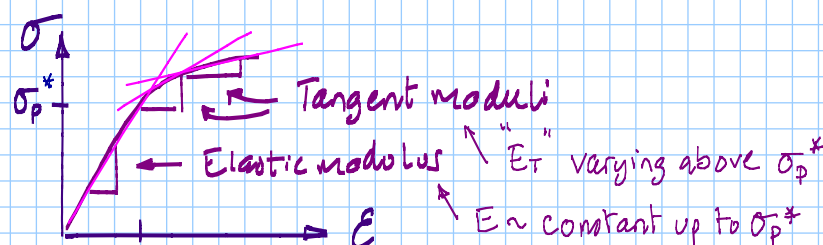 σ
σp*
Tangent moduli
Elastic modulus
"ET" varying above σp*
E ~ constant up to σp*
ε